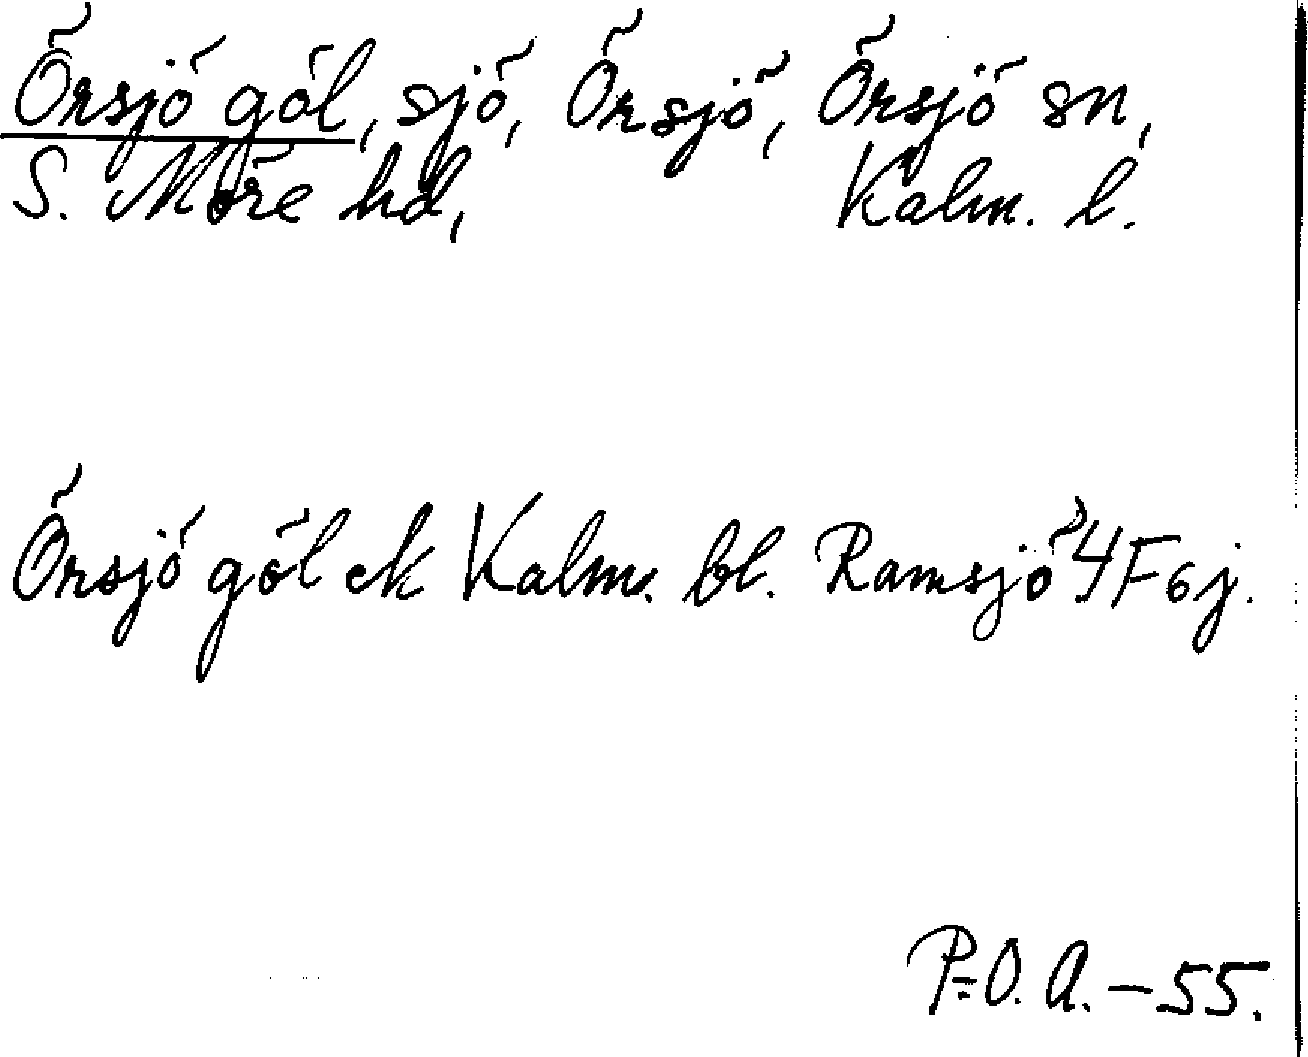 Örsjö göl, sjö, Örsjö, Örsjö sn,
S. Möre hd, Kalm. l.
Örsjö göl ek Kalm. bl. Ramsjö 4F6j.
P-O. A. - 55.